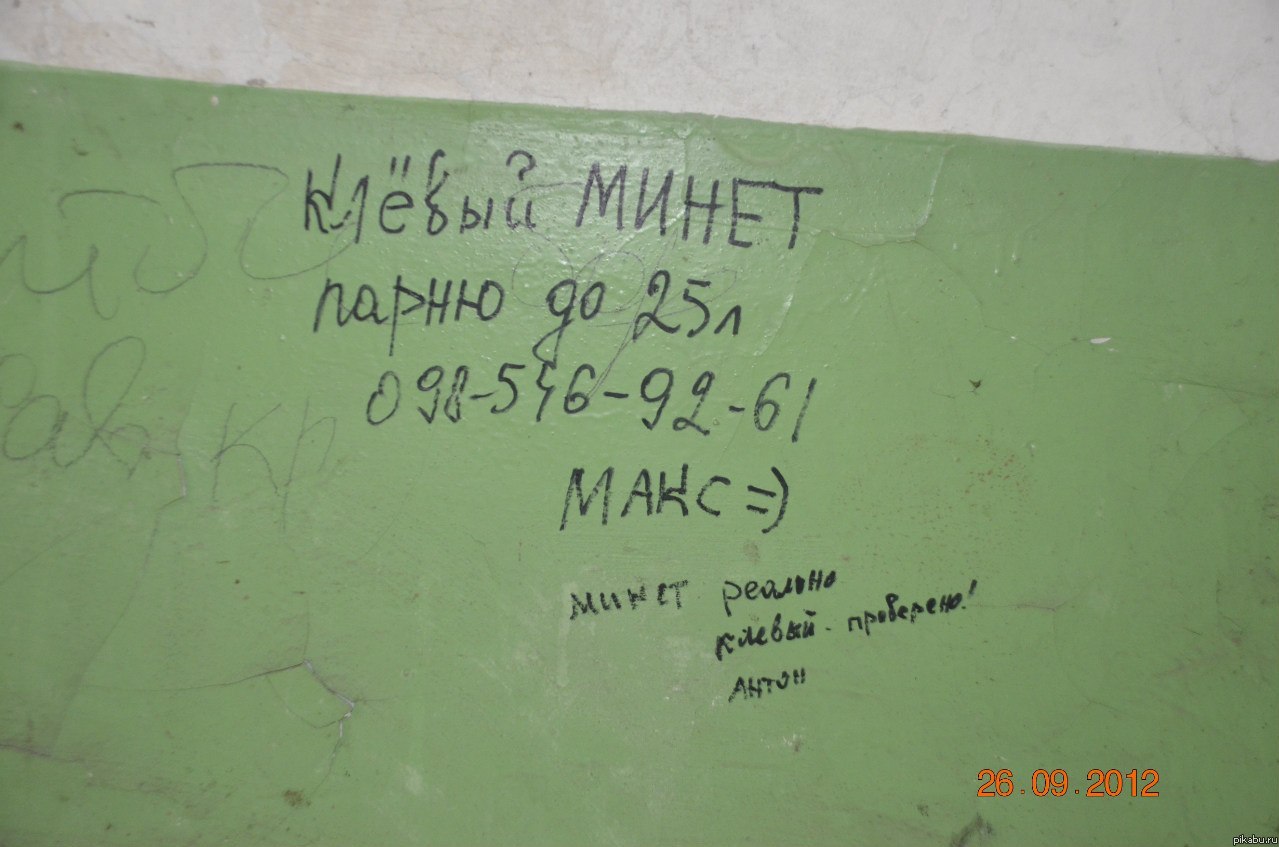 клёвый МИНЕТ
парню до 25л
098-546-92-61
МАКС =)
минет реально
клевый - проверено!
Антон
26.09.2012
pikabu.ru